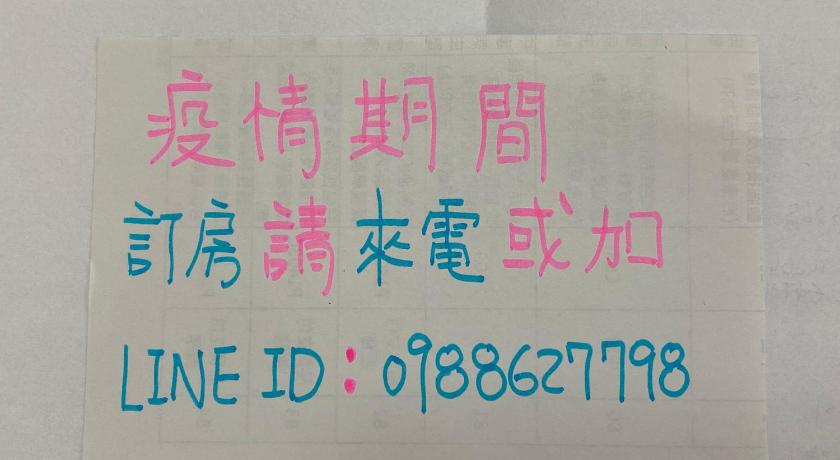 疫情期間
訂房請來電或加
LINE ID：0988627798